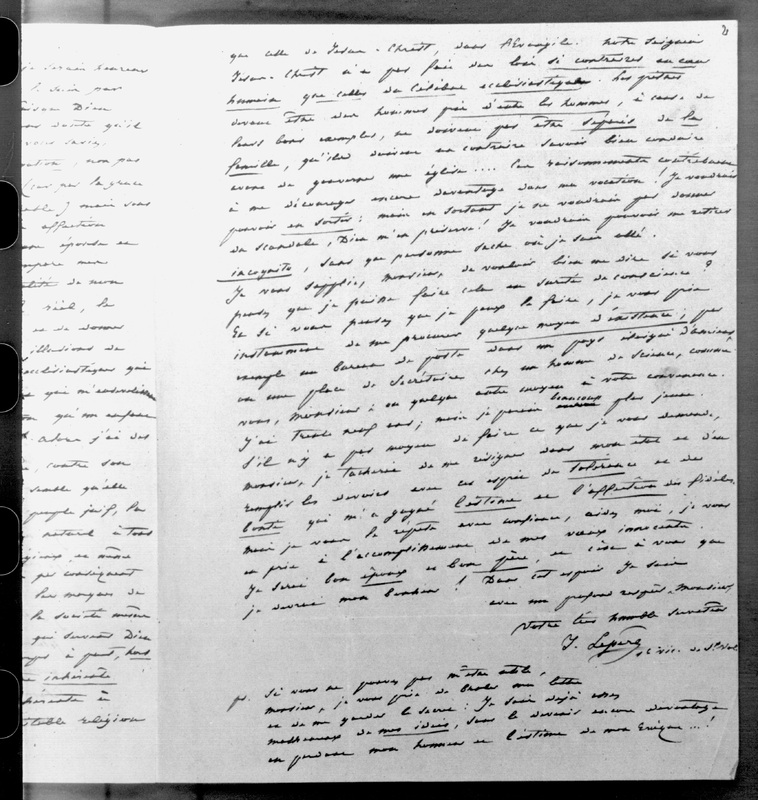 je serais heureux
je suis par
puisque Dieu
sans doute qu'il
vous savez,
, non pas
(car par la grace
) mais sous
affection
une épouse et
mon
de mon
réel, la
et de donner
illusions de
ecclésiastiques qui
et qui
qui me
j'ai des
, contre son
semble qu'elle
peuple juif, la
naturel à tous
et même
par conséquent
les moyens de
la société même
qui servent Dieu
à part, hors
inhérente
inhérente à
véritable religion
2
que celle de Jésus-Christ, dans l'Evangile. Notre Seigneur
Jésus-Christ n'a pas fait de loi si contraire au cœur
humain que celle du Célibat ecclésiastique. Les prêtres
devant être des hommes pris d'entre les hommes, à cause de
leurs bons exemples, ne doivent pas être séparés de la
famille, qu'ils doivent au contraire savoir bien conduire
avant de gouverner une église.... Ces raisonnements contribuent
à me décourager encore davantage dans ma vocation ! Je voudrais
pouvoir en sortir : mais en sortant je ne voudrais pas donner
du scandale, Dieu m'en préserve ! Je voudrais pouvoir me retirer
incognito, sans que personne sache où je suis allé.
Je vous supplie, monsieur, de vouloir bien me dire si vous
pensez que je puisse faire cela en sureté de conscience ?
Et si vous pensez que je peux le faire, je vous prie
instamment de me procurer quelque moyen d'existence, par
exemple un bureau de poste dans un pays éloigné d'Amiens
ou une place de Secrétaire chez un homme de Science, comme
vous, Monsieur, ou quelque autre moyen à votre convenance.
J'ai trente neuf ans ; mais je parais beaucoup plus jeune.
S'il n'y a pas moyen de faire ce que je vous demande,
monsieur, je tacherai de me résigner dans mon état et d'en
remplir les devoirs avec cet esprit de tolérance et de
bonté qui m'a gagné l'estime et l'affection des fidèles,
mais je vous le répète avec confiance, aidez moi, je vous
en prie à l'accomplissement de mes vœux innocents.
Je serai bon époux et bon père, et c'est à vous que
je devrai mon bonheur ! Dans cet espoir Je suis
avec un profond respect, Monsieur,
Votre très humble serviteur
J.
vic. de St
ps. Si vous ne pouvez pas m'être utile,
monsieur, je vous prie de bruler ma lettre
et de me garder le secret : Je suis déjà assez
malheureux de mes idées, sans le devenir encore davantage
en perdant mon honneur et l'estime de mon Evêque...!